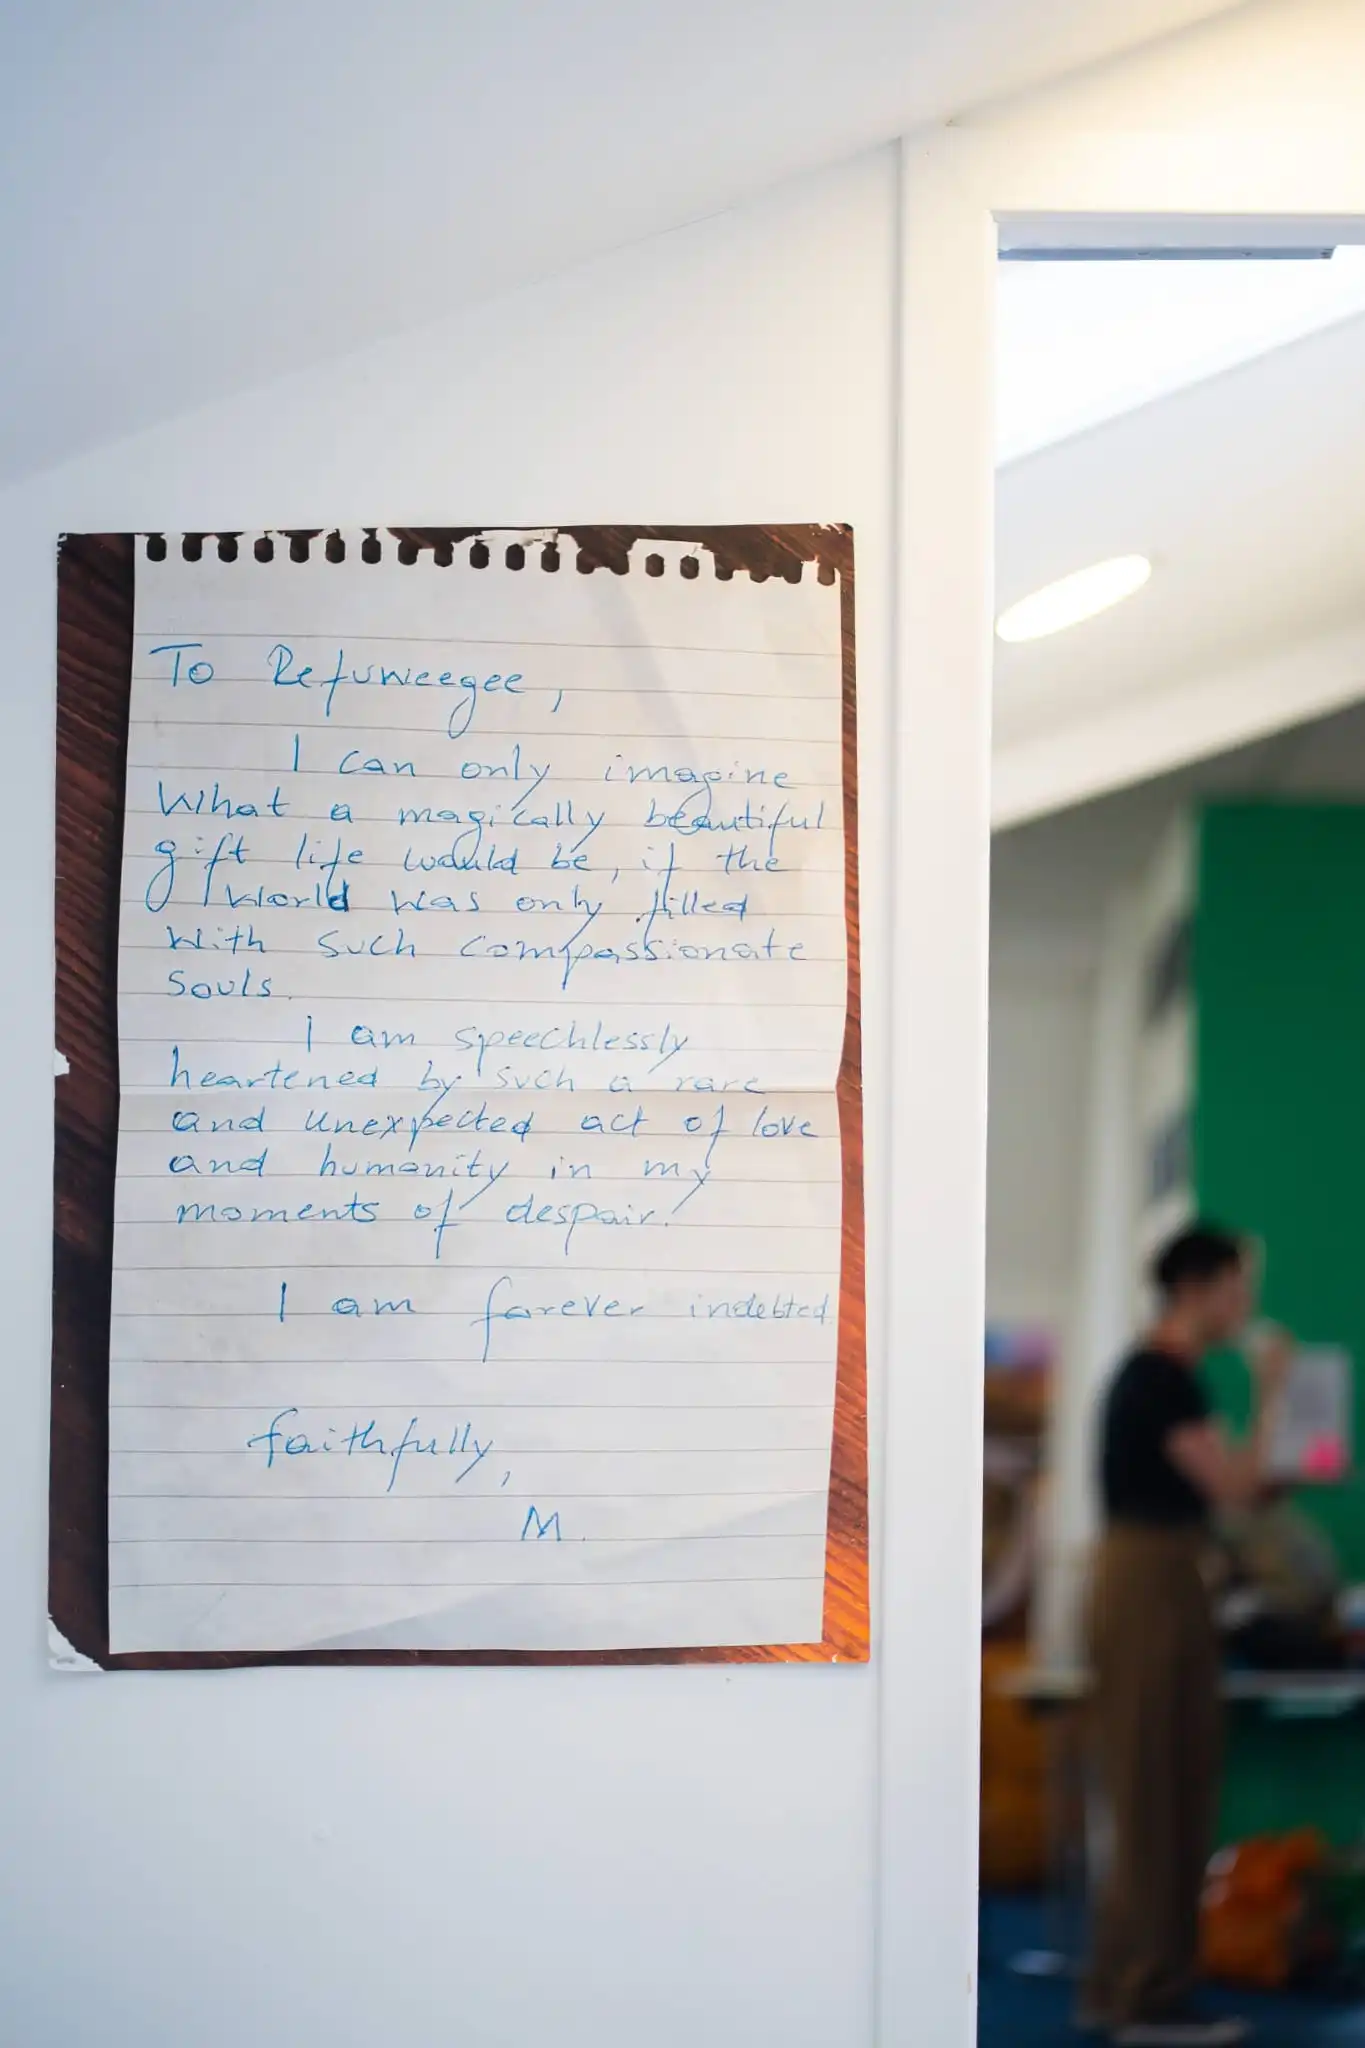 To Refuweegee,
I can only imagine
What a magically beautiful
gift life would be, if the
World was only filled
With such compassionate
Souls.
I am speechlessly
heartened by such a rare
and unexpected act of love
and humanity in my
moments of despair!
I am forever indebted
faithfully,
M.